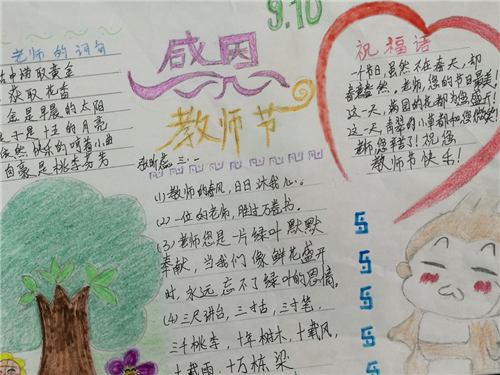 9.10
感恩
教师节
老师的词句
中获取黄金
获取花香
金是早晨的太阳
十是十五的月亮
快乐的唱着小曲
自豪是桃李芬芳
三.一
(1)教师的春风，日日沐我心。
(2)一位好老师，胜过万卷书。
(3)老师您是一片绿叶默默
奉献，当我们像鲜花盛开
时，永远忘不了绿叶的恩情。
(4)三尺讲台，三寸舌，三寸笔，
三千桃李，十年树木，十载风，
十载雨，十万栋梁
祝福语
一个节日，虽然不在春天，却
春意盎然，老师，您的节日最美！
这一天，满园的花都为您盛开！
这一天，青翠的小草都和您微笑！
老师您辛苦了！祝您
教师节快乐！